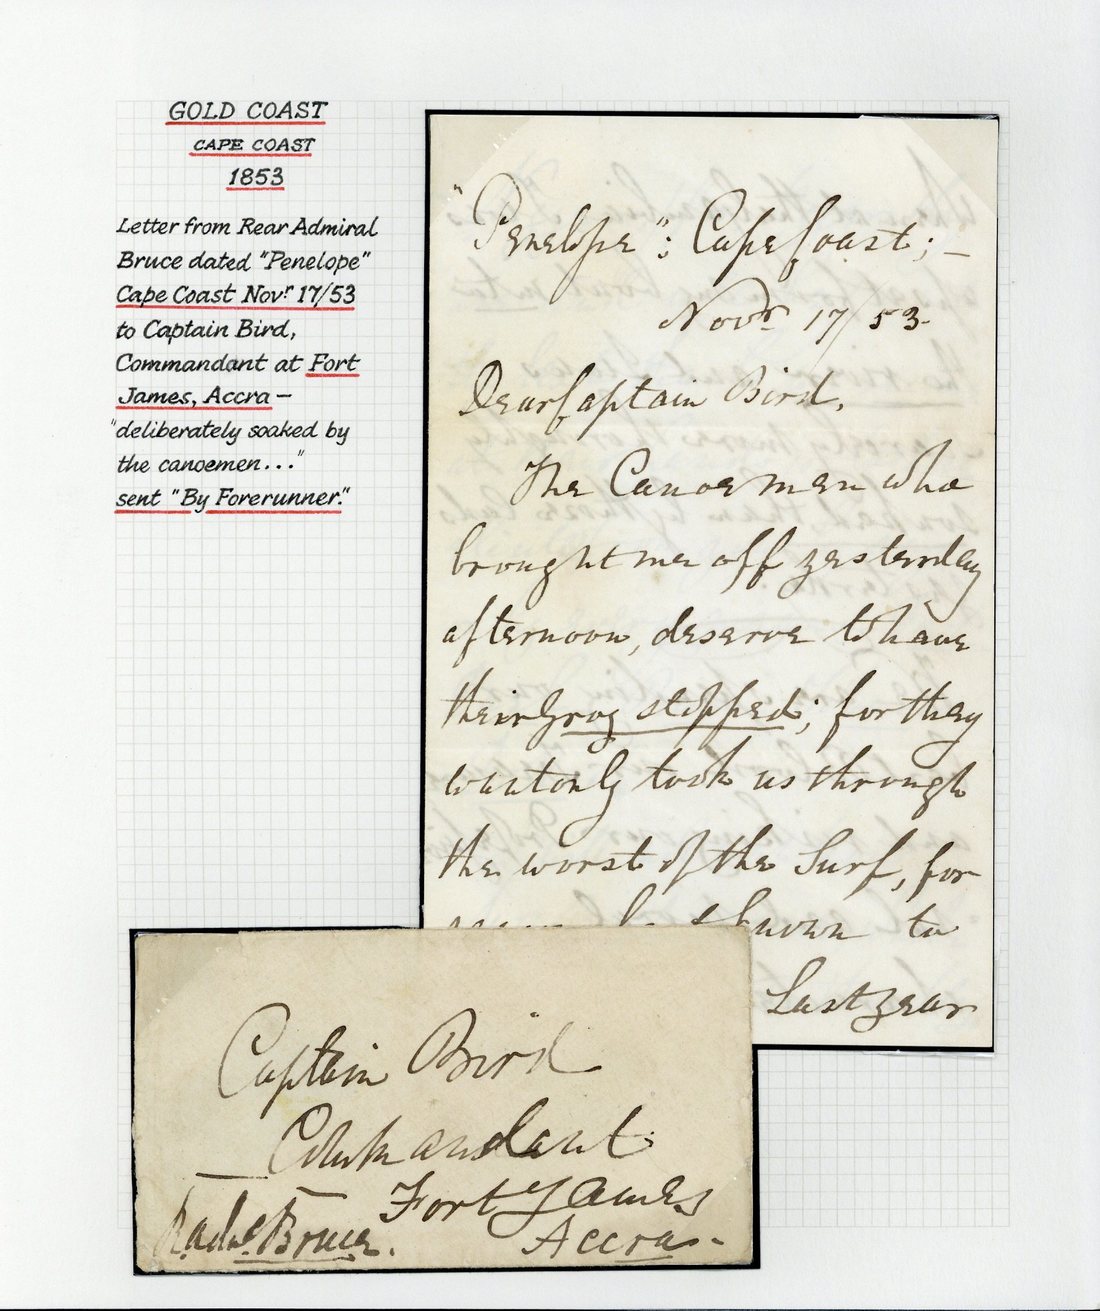 GOLD COAST
CAPE COAST
1853
Letter from Rear Admiral
Bruce dated "Penelope"
Cape Coast Novr 17/53
to Captain Bird,
Commandant at Fort
James, Accra —
"deliberately soaked by
the canoemen..."
sent "By Forerunner."
"Penelope": Cape Coast; —
Novr 17/53-
Dear Captain Bird,
The Canoemen who
brought me off yesterday
afternoon, deserve to have
their Grog stopped; for they
wantonly took us through
the worst of the Surf, for
known to
Last year
Captain Bird
Commandant
Fort James
Accra-
Bruce.